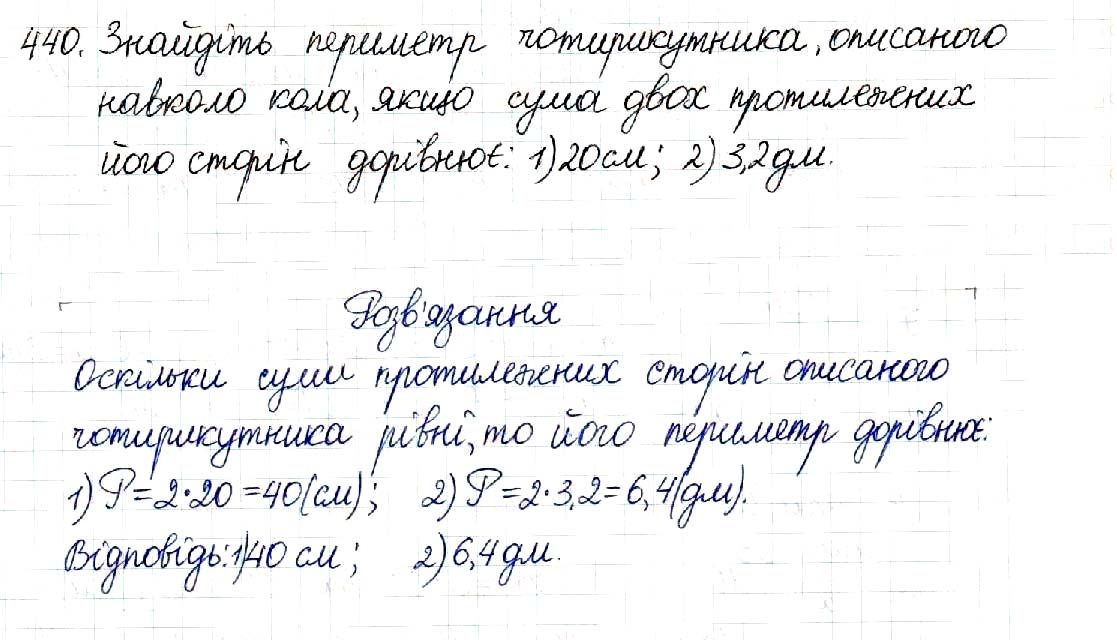 440. Знайдіть периметр чотирикутника, описаного
навколо кола, якщо сума двох протилежних
його сторін дорівнює: 1) 20 см; 2) 3,2 дм.
Розв'язання
Оскільки суми протилежних сторін описаного
чотирикутника рівні, то його периметр дорівнює:
1) P = 2·20 = 40 (см); 2) P = 2·3,2 = 6,4 (дм).
Відповідь: 1) 40 см; 2) 6,4 дм.